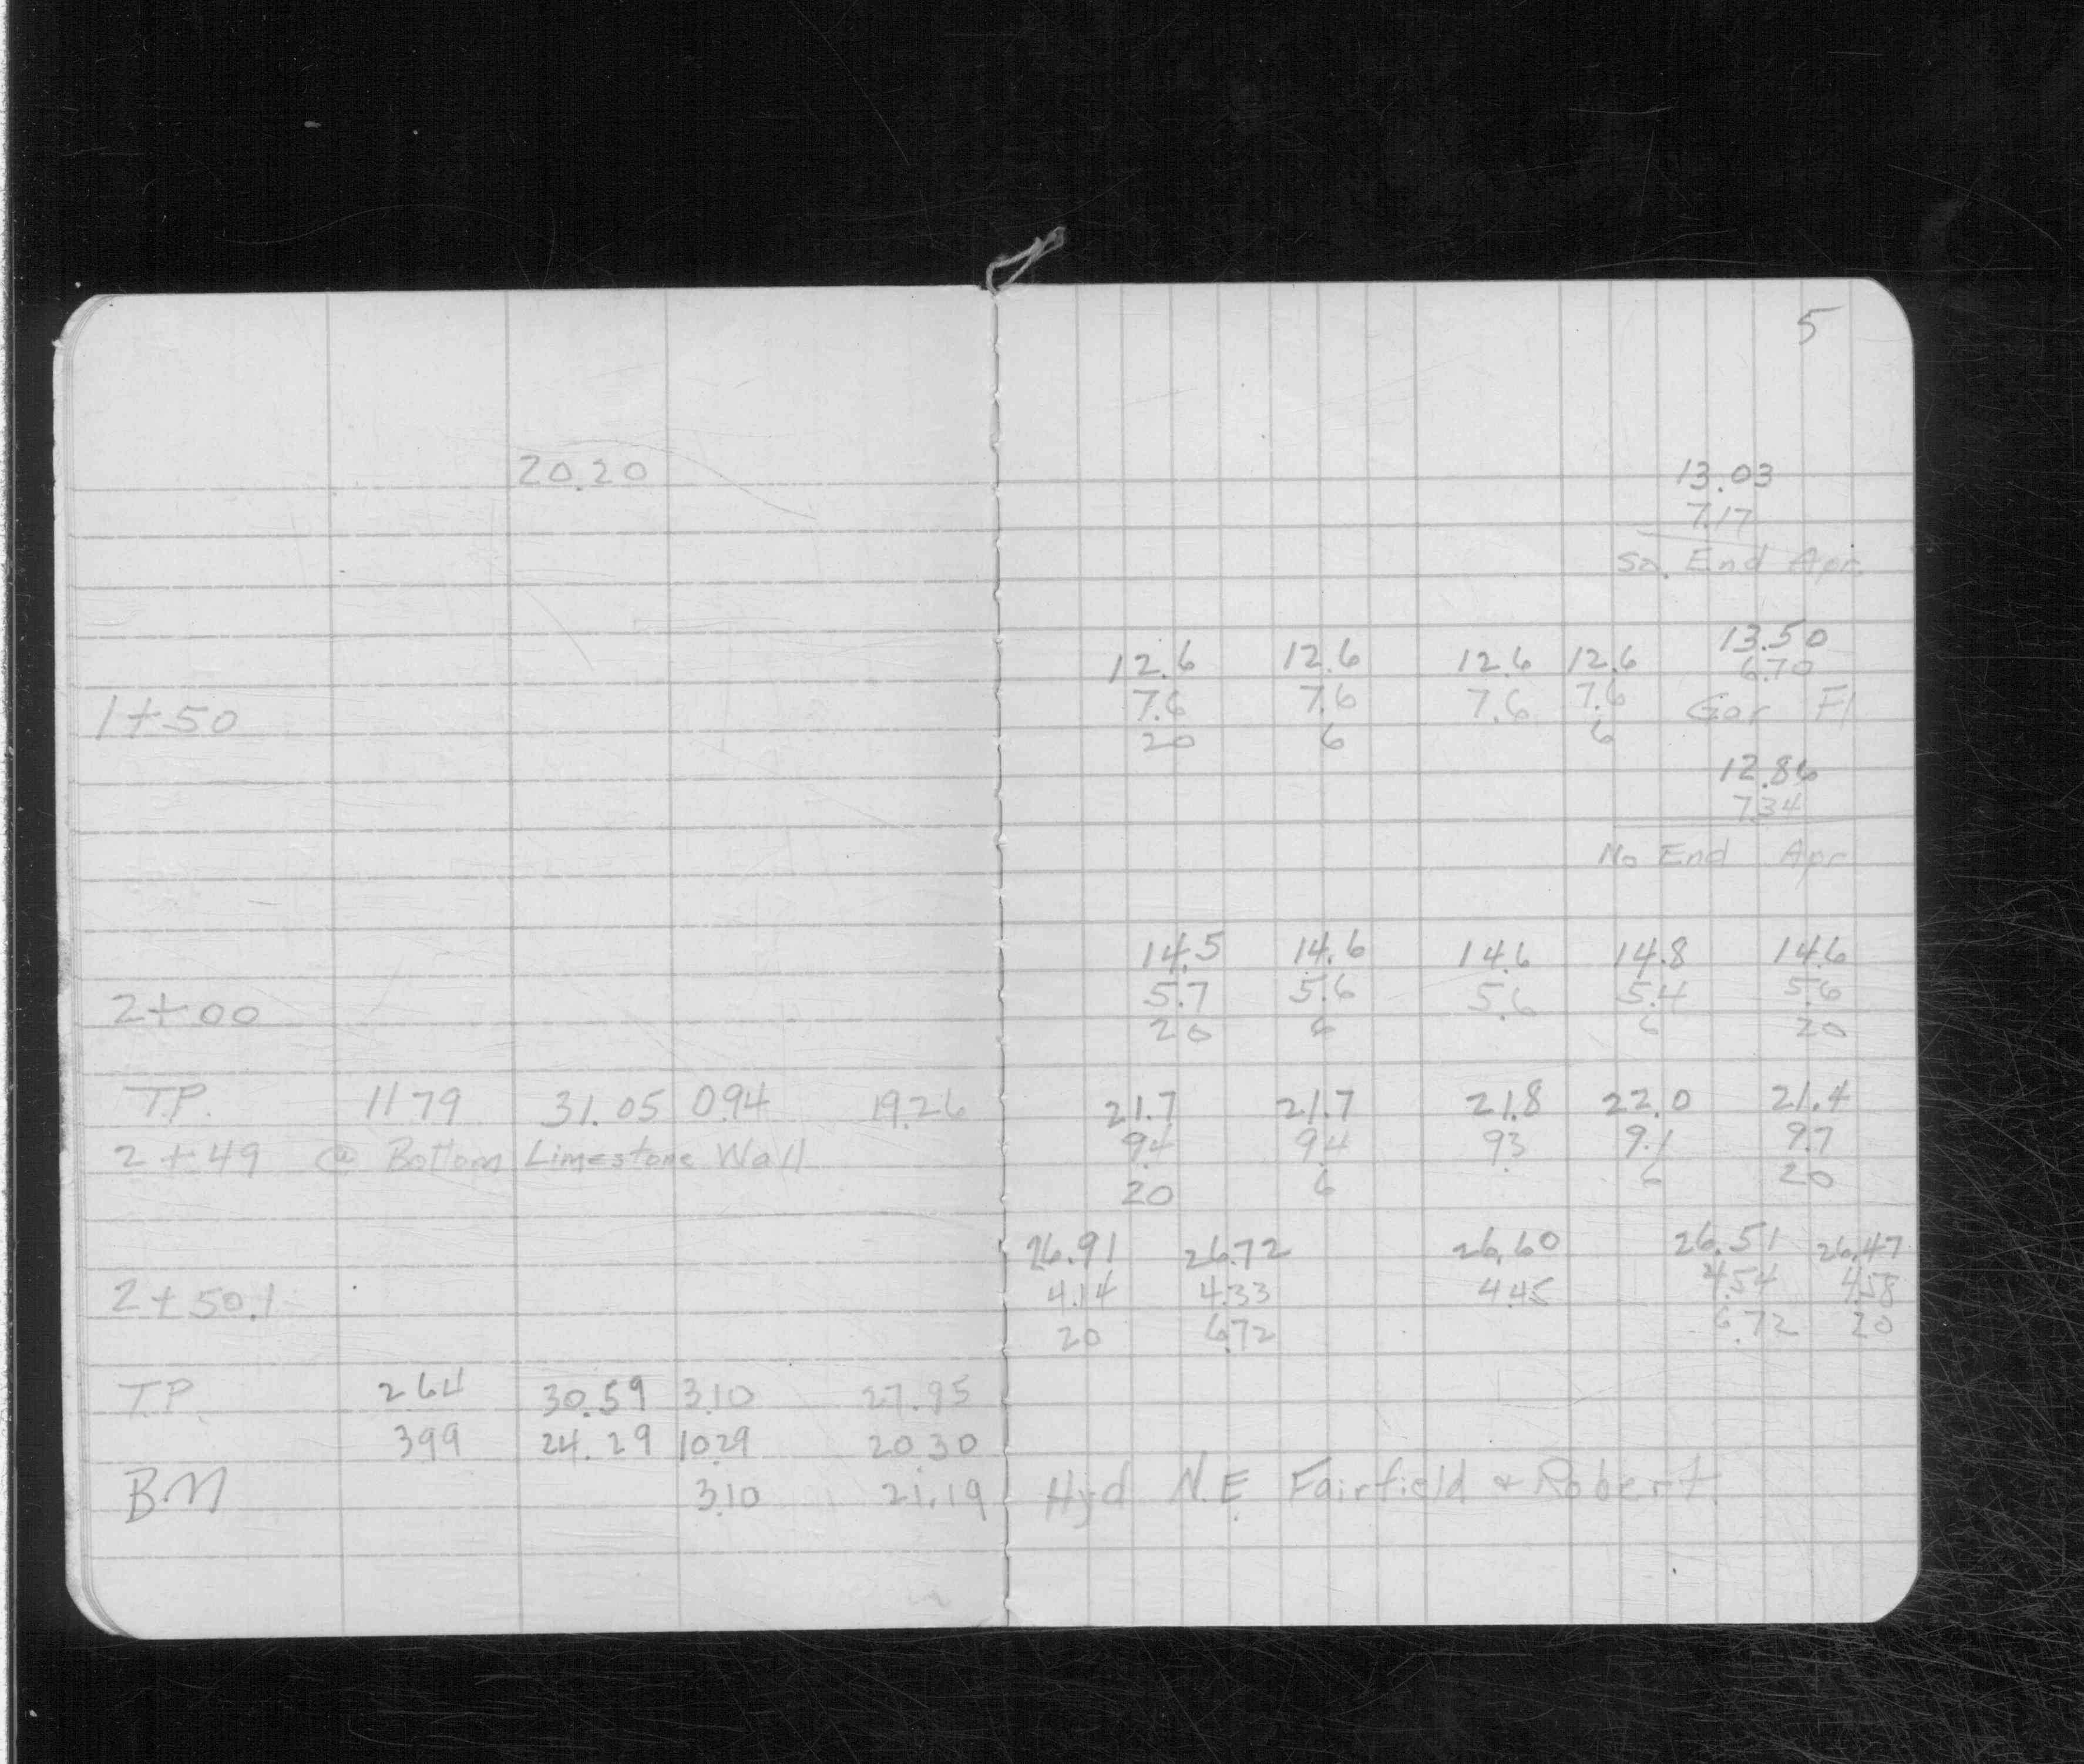 5
20.20 13.03
7.17
So. End Apr.
13.50
12.6 12.6 12.6 12.6 6.70
1+50 7.6 7.6 7.6 7.6 Gar Fl
20 6 6
12.86
7.34
No End Apr
14.5 14.6 14.6 14.8 14.6
2+00 5.7 5.6 5.6 5.4 5.6
20 6 6 20
T.P. 11 79 31.05 0.94 19.26 21.7 21.7 21.8 22.0 21.4
2+49 @ Bottom Limestone Wall 9.4 9.4 9.3 9.1 9.7
20 6 6 20
26.91 26.72 26.60 26.51 26.47
2+50.1 4.14 4.33 4.45 4.54 4.58
20 6.72 6.72 20
T.P. 2 64 30.59 3.10 27.95
3 99 24.29 10.29 20.30
BM 3.10 21.19 Hyd N.E. Fairfield & Robert.